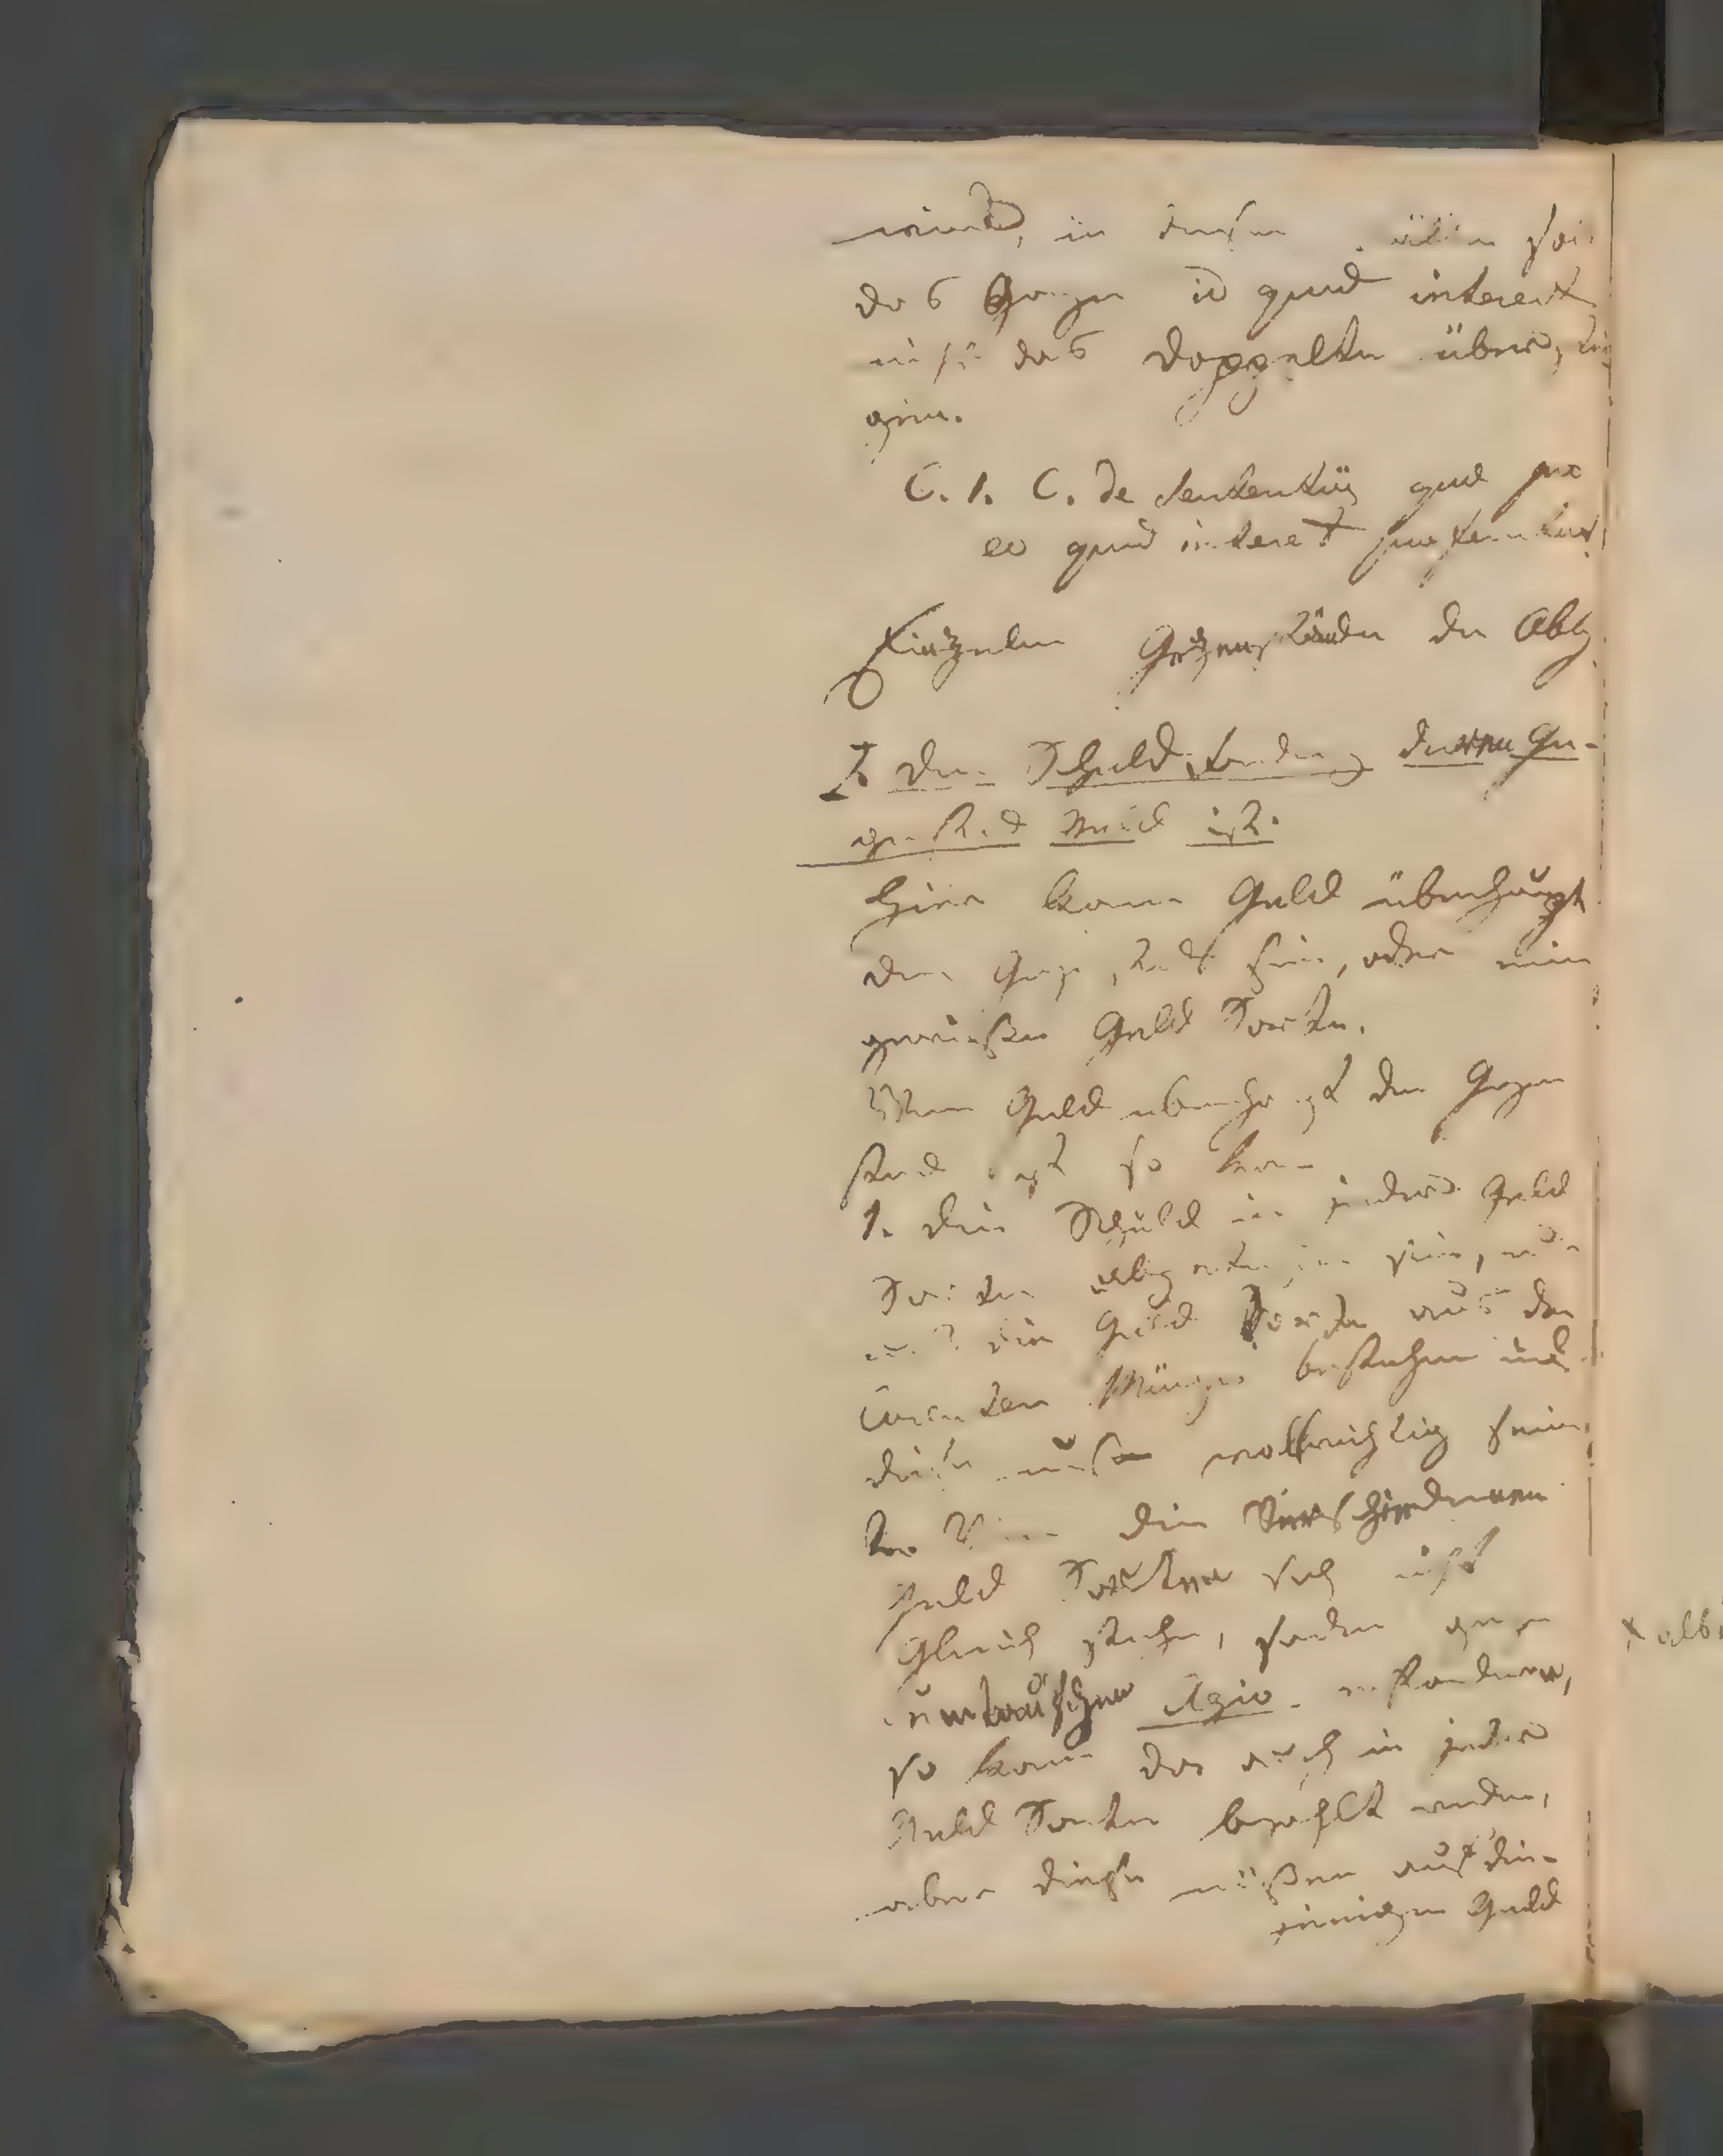 wird, in diesen Fällen soll
das Ganze id quod interest
nicht das doppelte überstei
gen.
C. 1. C. de sententiis quae pro
eo quod interest proferuntur.
Einzelne Gegenstände der Oblig.
I. der Schuldforderung deren Ge-
genstand Geld ist.
Hier kann Geld überhaupt
der Gegenstand sein, oder eine
gewisse Geld Sorte.
Wenn Geld überhaupt der Gegen
stand ist so kann
1. die Schuld in jeder Geld
Sorte abgetragen sein, nur
muß die Geld Sorte aus der
Curenten Münze bestehen und
diese muß vollwichtig sein,
2. Wenn die Verschiedenen
Geld Sorten sich nicht
gleich stehn, sondern gegen
umtauschen Agio
so kann das auch in jeder
Geld Sorte bezahlt werden,
aber diese müßen auf die-
jenigen Geld